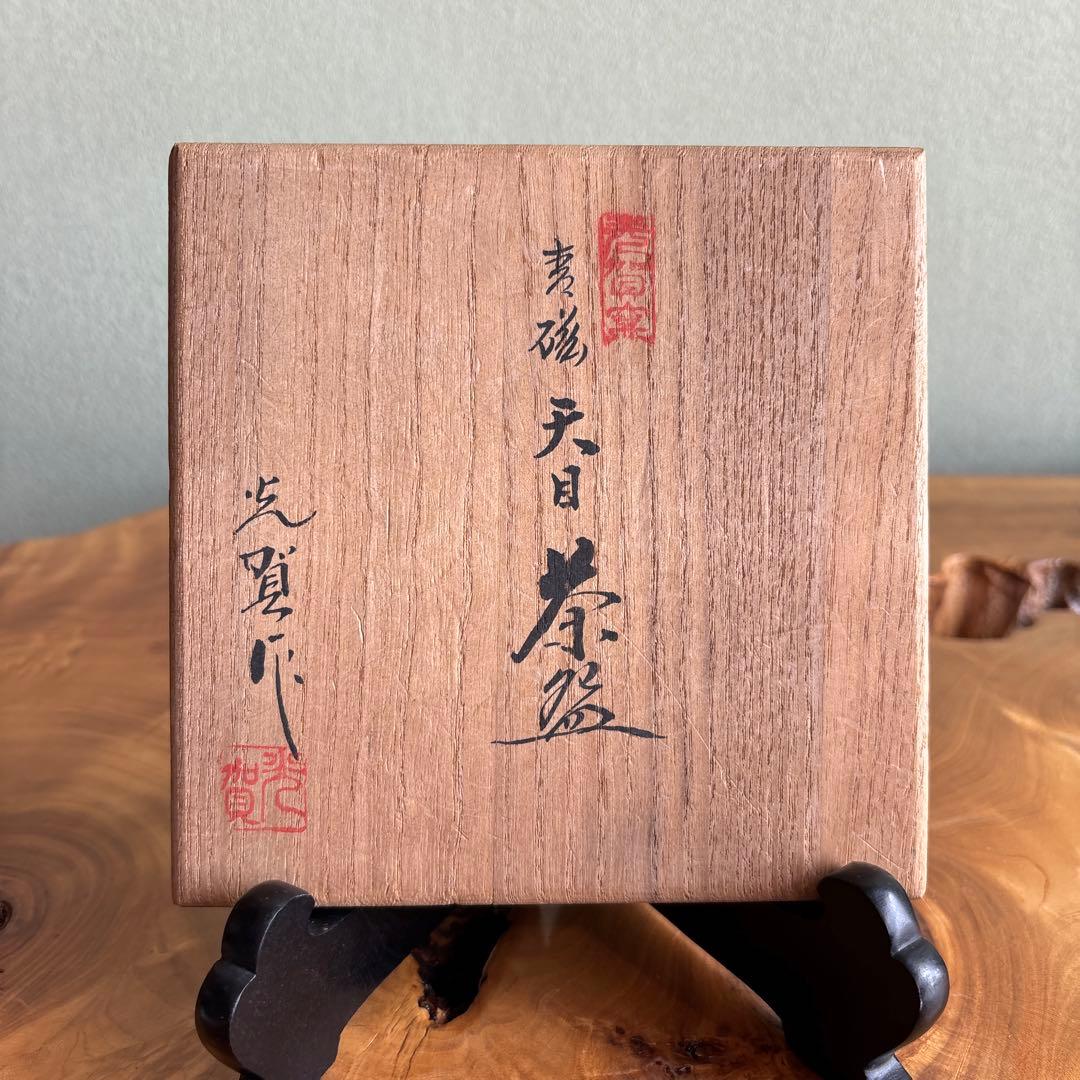 青磁 天目 茶盌
光賀作
光賀